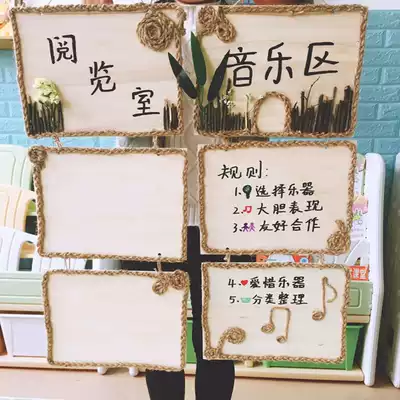 阅览室
音乐区
规则:
1.选择乐器
2.大胆表现
3.友好合作
4.爱惜乐器
5.分类整理